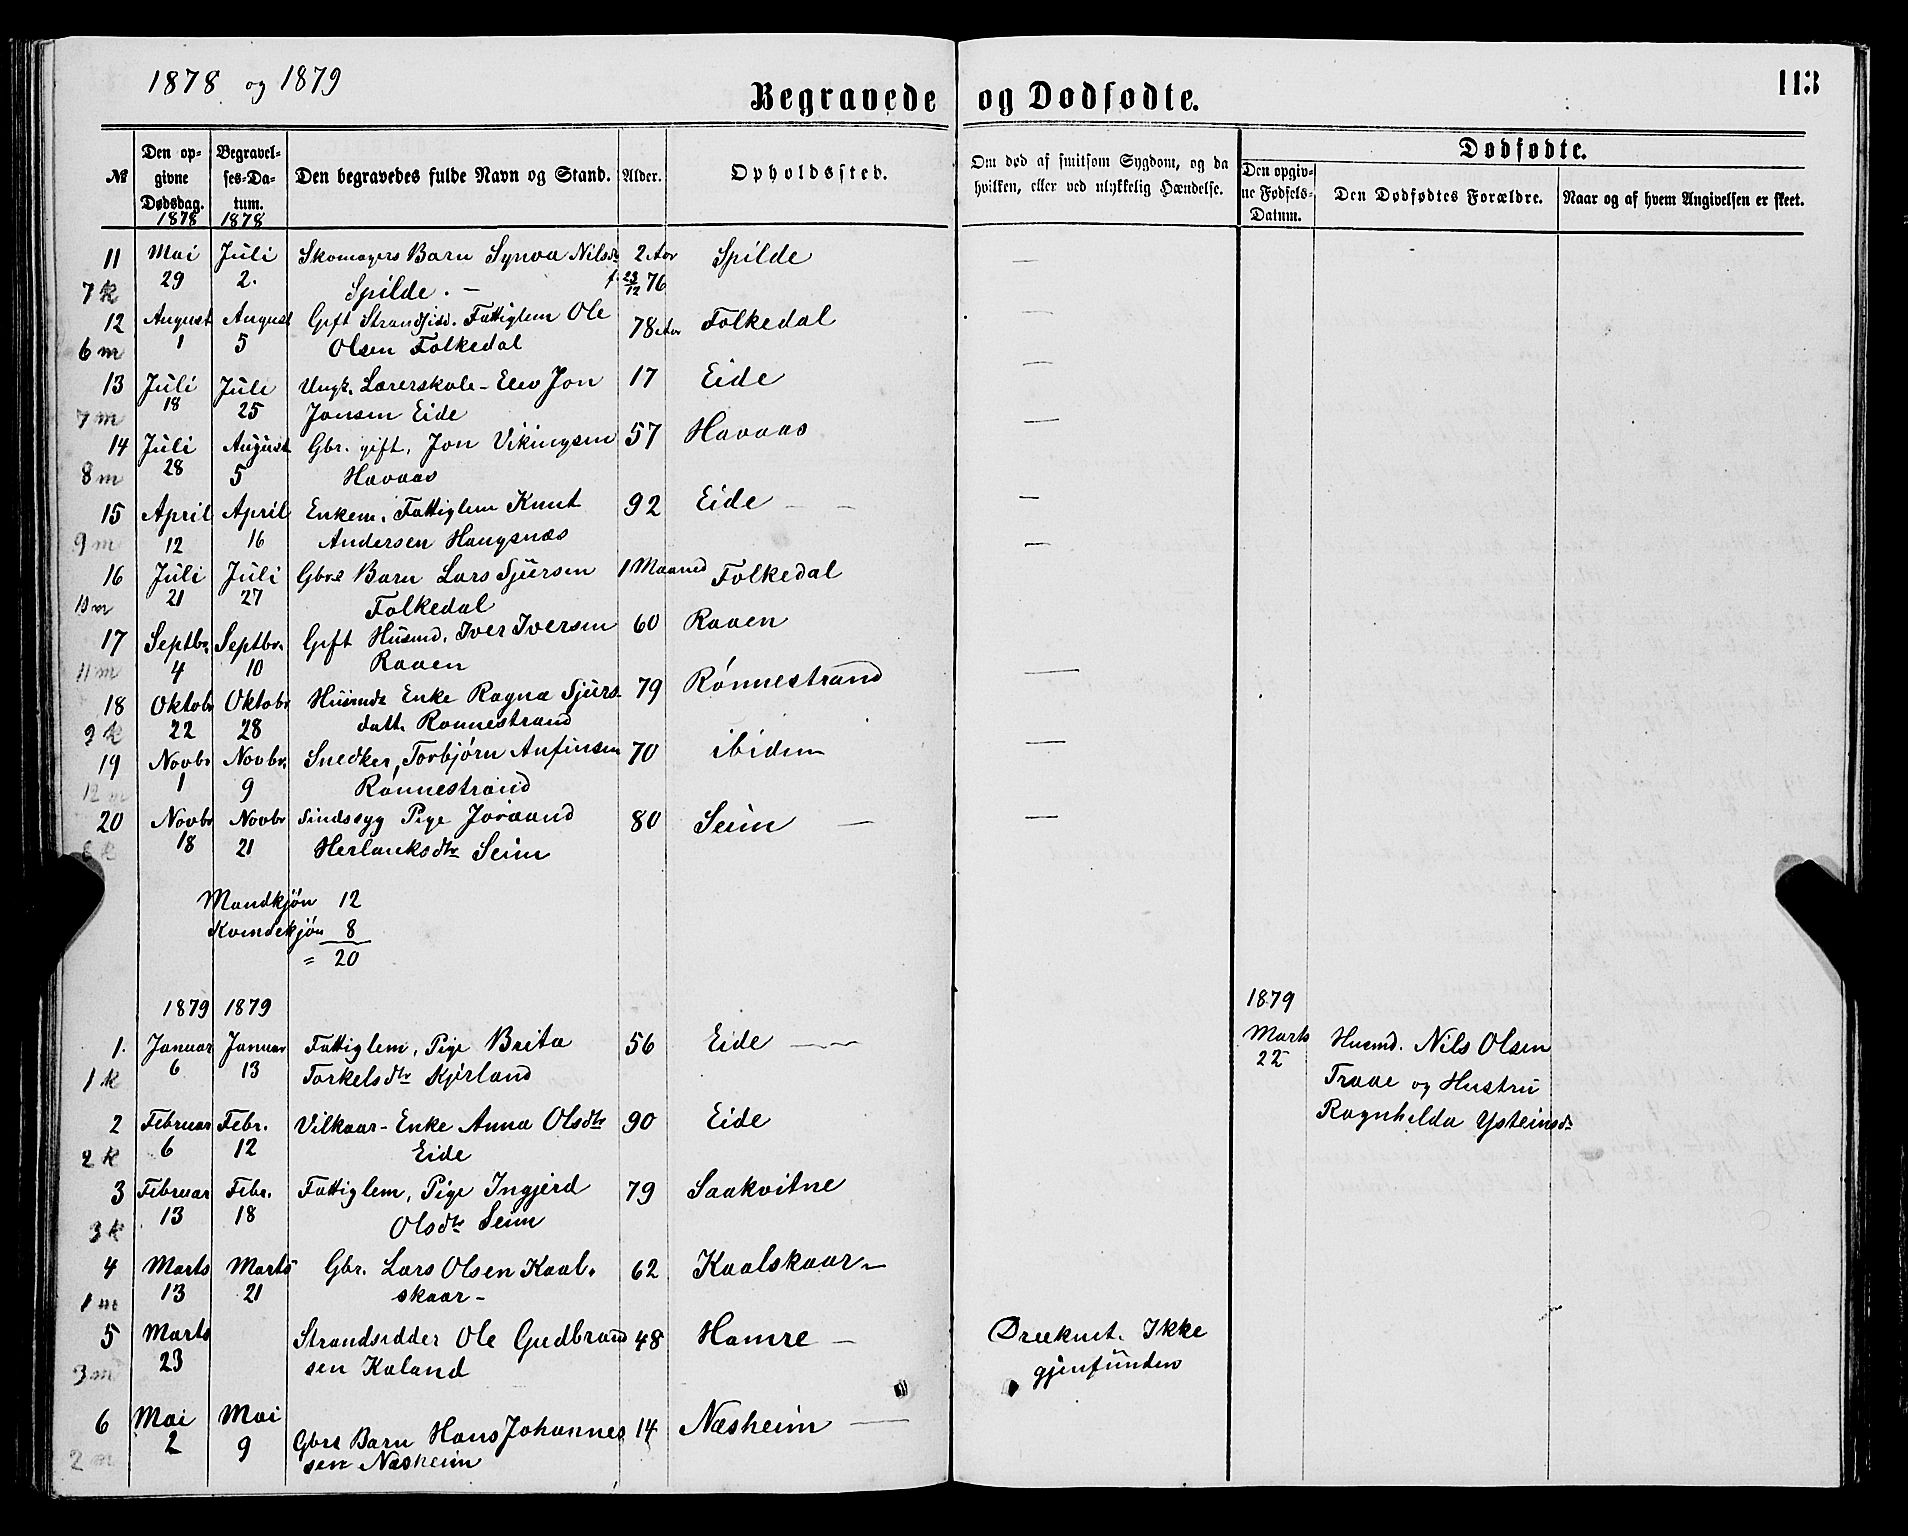 1878 og 1879
Begravede og Dødfødte.
113
№ Den opgivne Dødsdag. 1878 Begravelses-Datum. 1878 Den begravedes fulde Navn og Stand. Alder. Opholdssted. Om død af smitsom Sygdom, og da hvilken, eller ved ulykkelig Hændelse. Dødfødte. Den opgivne Fødsels-Datum. Den Dødfødtes Forældre. Naar og af hvem Angivelsen er skeet.
11 Mai Juli Skomagers Barn Synva Nilsdr 2 Aar Spilde —
7 k 29 2. Spilde. — f. 23/12 76
12 August August Gift Strandsid. Fattiglem Ole 78 Aar Folkedal —
6 m 1 5 Olsen Folkedal
13 Juli Juli Ungk. Lærerskole-Elev Jon 17 Eide —
7 m 18 25 Jonsen Eide
14 Juli August Gbr. gift, Jon Vikingsen 57 Havaas —
8 m 28 5 Havaas
15 April April Enkem. Fattiglem Knut 92 Eide — — —
9 m 12 16 Andersen Hangsnæs
16 Juli Juli Gbrs Barn Lars Sjursen 1 Maaned Folkedal —
10 m 21 27 Folkedal
17 Septbr. Septbr. Gift Husmd. Iver Iversen 60 Raaen
11 m 4 10 Raaen —
18 Oktobr Oktobr Husmds Enke Ragna Sjurs- 79 Rønnestrand
9 k 22 28 datt. Rønnestrand
19 Novbr Novbr. Snedker, Torbjørn Anfinsen 70 ibidem —
12 m 1 9 Rønnestrand
20 Novbr Novbr Sindssyg Pige Joraand 80 Seim — —
8 k 18 21 Herlauksdtr Seim
Mandkjøn 12
Kvindekjøn 8
= 20
1879 1879 1879
1. Januar Januar Fattiglem, Pige Brita 56 Eide — Marts Husmd. Nils Olsen
1 k 6 13 Torkelsdtr Kjerland 22 Traae og Hustru
2 Februar Febr. Vilkaar-Enke Anna Olsdtr 90 Eide Ragnhilda Ysteinsdr
2 k 6 12 Eide
3 Februar Febr. Fattiglem, Pige Ingjerd 79 Saakvitne
3 k 13 18 Olsdtr Seim
4 Marts Marts Gbr. Lars Olsen Kaal- 62 Kaalskaar —
1 m 13 21 skaar —
5 Marts Strandsidder Ole Gudbrand 48 Hamre — Druknet. Ikke
3 m 23 sen Kaland gjenfunden
6 Mai Mai Gbrs Barn Hans Johannes 14 Næsheim —
2 m 2 9 sen Næsheim